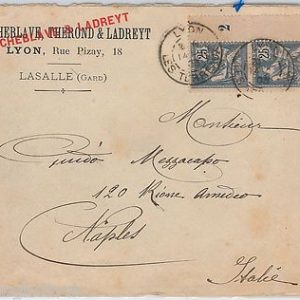 CHEBLAVE, THEROND & LADREYT
CHEBLAVE & LADREYT
LYON, Rue Pizay, 18
LASALLE (GARD)
2
25
25
LYON
LYON
Monsieur
Guido Mezzacapo
120 Rione Amedeo
Naples
Italie